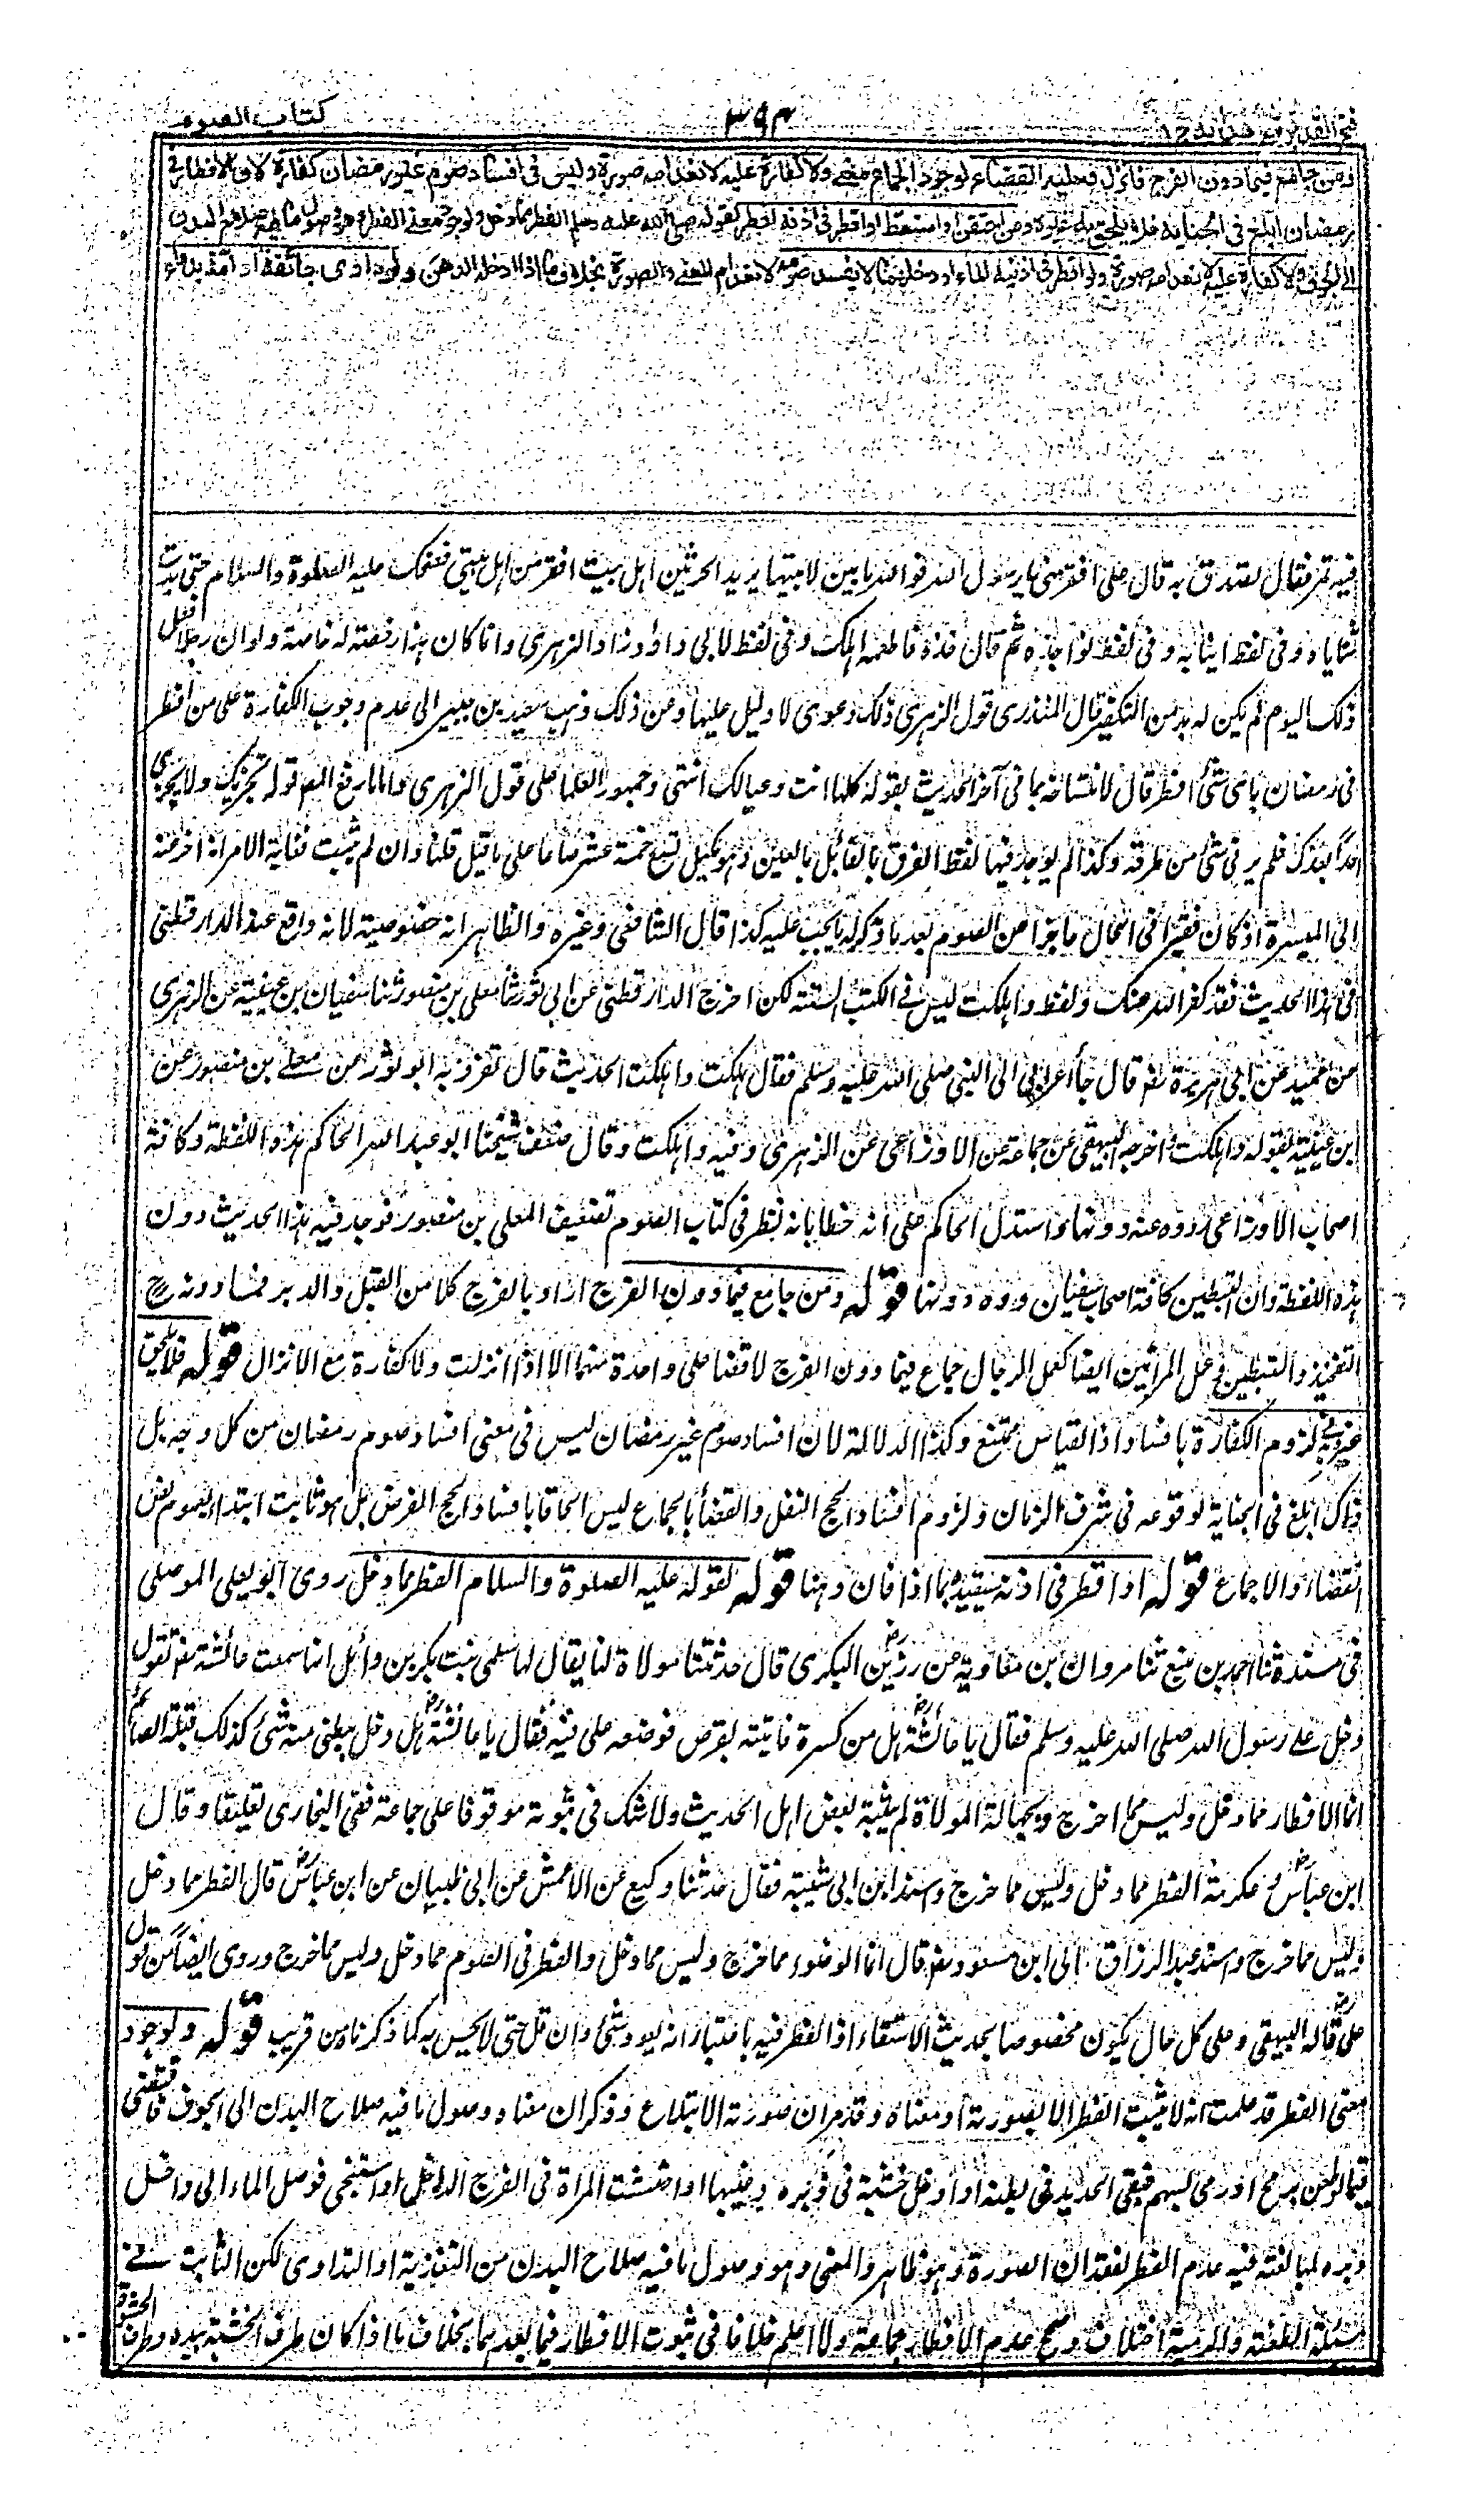 فتح القدير مع هدايه
٣٩٣
كتاب الصوم
ومن جامع فيما دون الفرج فانزل فعليه القضاء لوجود الجماع معنى ولا كفارة عليه لانعدامه صورة وليس فى افساد صوم غير رمضان كفارة لان الافطار فى
رمضان ابلغ فى الجناية فلا يلحق به غيره ومن احتقن او استعط او اقطر فى اذنه افطر لقوله صلى الله عليه وسلم الفطر مما دخل ولوجود معنى الفطر وهو وصول ما فيه صلاح البدن
الى الجوف ولا كفارة عليه لانعدامه صورة ولو اقطر فى اذنيه الماء او دخلهما لا يفسد صومه لانعدام المعنى والصورة بخلاف ما اذا ادخله الدهن ولو داوى جائفة او آمة بدواء
فيه تمر فقال تصدق به قال على افقر منى يا رسول الله فوالله ما بين لابتيها يريد الحرتين اهل بيت افقر من اهل بيتى فضحك عليه الصلوة والسلام حتى بدت
ثناياه وفى لفظ انيابه وفى لفظ نواجذه ثم قال خذه فاطعمه اهلك وفى لفظ لابى داود زاد الزهرى وانما كان هذا رخصة له خاصة ولو ان رجلا فعل
ذلك اليوم لم يكن له بد من التكفير قال المنذرى قول الزهرى ذلك دعوى لا دليل عليها وعن ذلك ذهب سعيد بن جبير الى عدم وجوب الكفارة على من افطر
فى رمضان باى شئ افطر قال لانتساخه بما فى آخر الحديث بقوله كلها انت وعيالك انتهى وجمهور العلماء على قول الزهرى واما رفع المص قوله تجزيك ولا يجزى
احدا بعدك فلم ير فى شئ من طرقه وكذا لم يوجد فيها لفظ الفرق بالفاء بل بالعين وهو مكيل تسع خمسة عشر صاعا على ما قيل قلنا وان لم يثبت فغاية الامر انه اخر عنه
الى الميسرة اذ كان فقيرا فى الحال عاجزا عن الصوم بعد ما ذكر له ما يجب عليه كذا قال الشافعى وغيره والظاهر انه خصوصية لانه واقع عند الدارقطنى
فى هذا الحديث فقد كفر الله عنك ولفظ واهلكت ليس فى الكتب الستة لكن اخرج الدارقطنى عن ابى ثور ثنا معلى بن منصور ثنا سفيان بن عيينة عن الزهرى
عن حميد عن ابى هريرة رضـ قال جاء اعرابى الى النبى صلى الله عليه وسلم فقال هلكت واهلكت الحديث قال تفرد به ابو ثور عن معلى بن منصور عن
ابن عيينة بقوله واهلكت واخرجه البيهقى عن جماعة عن الاوزاعى عن الزهرى وفيه واهلكت وقال ضعف شيخنا ابو عبد الله الحاكم هذه اللفظة وكافة
اصحاب الاوزاعى رووه عنه دونها واستدل الحاكم على انه خطا بانه نظر فى كتاب الصوم تصنيف المعلى بن منصور فوجد فيه هذا الحديث دون
هذه اللفظة وان كافة اصحاب سفيان رووه دونها قوله ومن جامع فيما دون الفرج اراد بالفرج كلا من القبل والدبر فما دونه ح
التفخيذ والتبطين وعمل المرأتين ايضا كعمل الرجال جماع فيما دون الفرج لا قضاء على واحدة منهما الا اذا انزلت ولا كفارة مع الانزال قوله فلا يلحق
غيره به فى لزوم الكفارة بافساده اذ القياس ممتنع وكذا الدلالة لان افساد صوم غير رمضان ليس فى معنى افساد صوم رمضان من كل وجه بل
ذاك ابلغ فى الجناية لوقوعه فى شرف الزمان ولزوم افساد الحج النفل والقضاء بالجماع ليس الحاقا بافساد الحج الفرض بل هو ثابت ابتداء بعموم نص
القضاء والاجماع قوله او اقطر فى اذنه سيقيده بما اذا كان دهنا قوله لقوله عليه الصلوة والسلام الفطر مما دخل روى ابو يعلى الموصلى
فى مسنده ثنا احمد بن منيع ثنا مروان بن معاوية عن رزين البكرى قال حدثتنا مولاة لنا يقال لها سلمى بنت بكر بن وائل انها سمعت عائشة رضـ تقول
دخل على رسول الله صلى الله عليه وسلم فقال يا عائشة هل من كسرة فاتيته بقرص فوضعه على فيه فقال يا عائشة هل دخل بطنى منه شئ كذلك قبلة الصائم
انما الافطار مما دخل وليس مما خرج وبجهالة المولاة لم يثبته بعض اهل الحديث ولا شك فى ثبوته موقوفا على جماعة ففى البخارى تعليقا وقال
ابن عباس وعكرمة الفطر مما دخل وليس مما خرج واسنده ابن ابى شيبة فقال حدثنا وكيع عن الاعمش عن ابى ظبيان عن ابن عباس قال الفطر مما دخل
وليس مما خرج واسند عبد الرزاق الى ابن مسعود رضـ قال انما الوضوء مما خرج وليس مما دخل والفطر فى الصوم مما دخل وليس مما خرج وروى ايضا من قول
على قاله البيهقى وعلى كل حال يكون مخصوصا بحديث الاستقاء اذ الفطر فيه باعتبار انه يعود شئ وان قل حتى لا يحس به كما ذكرناه من قريب قوله ولوجود
معنى الفطر قد علمت انه لا يثبت الفطر الا بصورته او معناه وقد مر ان صورته الابتلاع وذكر ان معناه وصول ما فيه صلاح البدن الى الجوف فاقتضى
فيما لو طعن برمح او رمى بسهم فبقى الحديد فى بطنه او ادخل خشبة فى دبره وغيبها او احتشت المرأة فى الفرج الداخل او استنجى فوصل الماء الى داخل
دبره لمبالغته فيه عدم الفطر لفقدان الصورة وهو ظاهر والمعنى وهو وصول ما فيه صلاح البدن من التغذية او التداوى لكن الثابت فى
مسئلة الطعنة والرمية اختلاف وصحح عدم الافطار جماعة ولا اعلم خلافا فى ثبوت الافطار فيما بعدهما بخلاف ما اذا كان طرف الخشبة بيده وطرف الحشوة